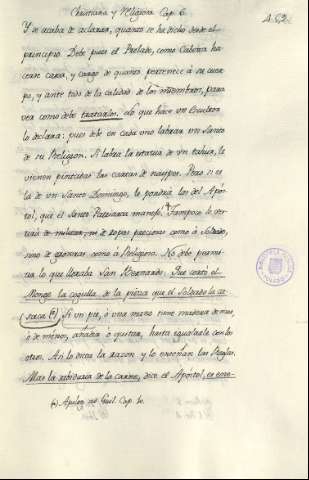 Christiana y Religiosa Cap. 6.
452
Y se acaba de aclarar, quanto se ha dicho desde el
principio. Debe pues el Prelado, como Cabeza ha-
cerse cargo, y cargo de quanto pertenece à su cuer-
po, y ante todo de la calidad de los miembros, para
ver como debe tratarlos. Lo que hace un Escultor
lo declara: pues debe en cada uno labrar un Santo
de su Religion. Si labra la estatua de un tahur, le
vienen pintadas las cartas de naypes. Pero si es
la de un Santo Domingo, le pondria las del Apos-
tol, que el Santo Patriarca manejó. Tampoco le ves-
tiria de militar, ni de ropas preciosas como à Soldado,
sino de groseras como à Religioso. No debe permi-
tir lo que lloraba San Bernardo. Que cortó el
Monge la cogulla de la pieza que el Soldado la ca-
saca (a) Si un pie, ó una mano tiene madera de mas,
ó de menos, añadir ó quitar, hasta igualarle con los
otros. Asi lo dicta la razon y lo enseñan las Reglas.
Mas la sabiduria de la carne, dice el Apóstol, es ene-
(a) Apolog. ad Guil. Cap. 10.